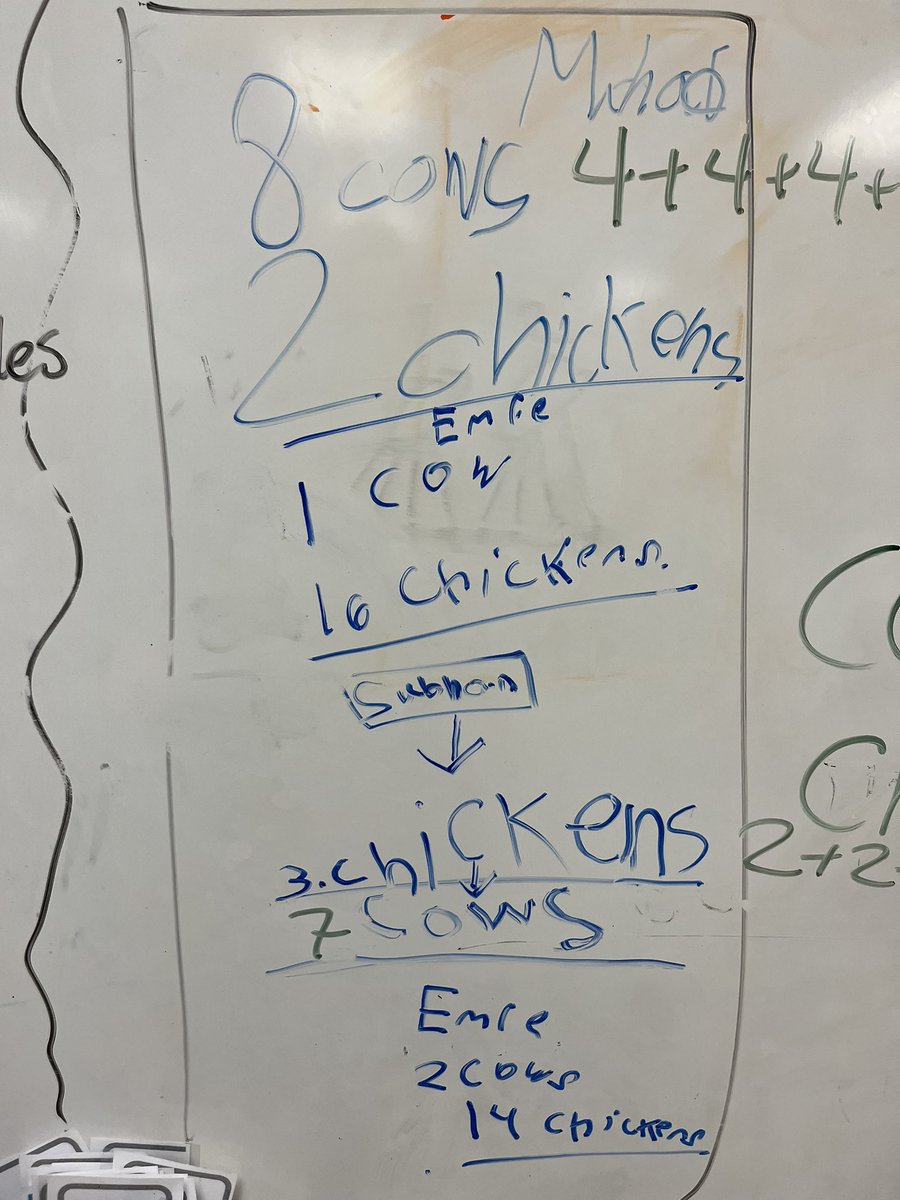 8 cows 4+4+4+
2 chickens
les
Emre
1 cow
16 chickens.
Subhan
3. chickens
2+2
7 cows
Emre
2 cows
14 chickens